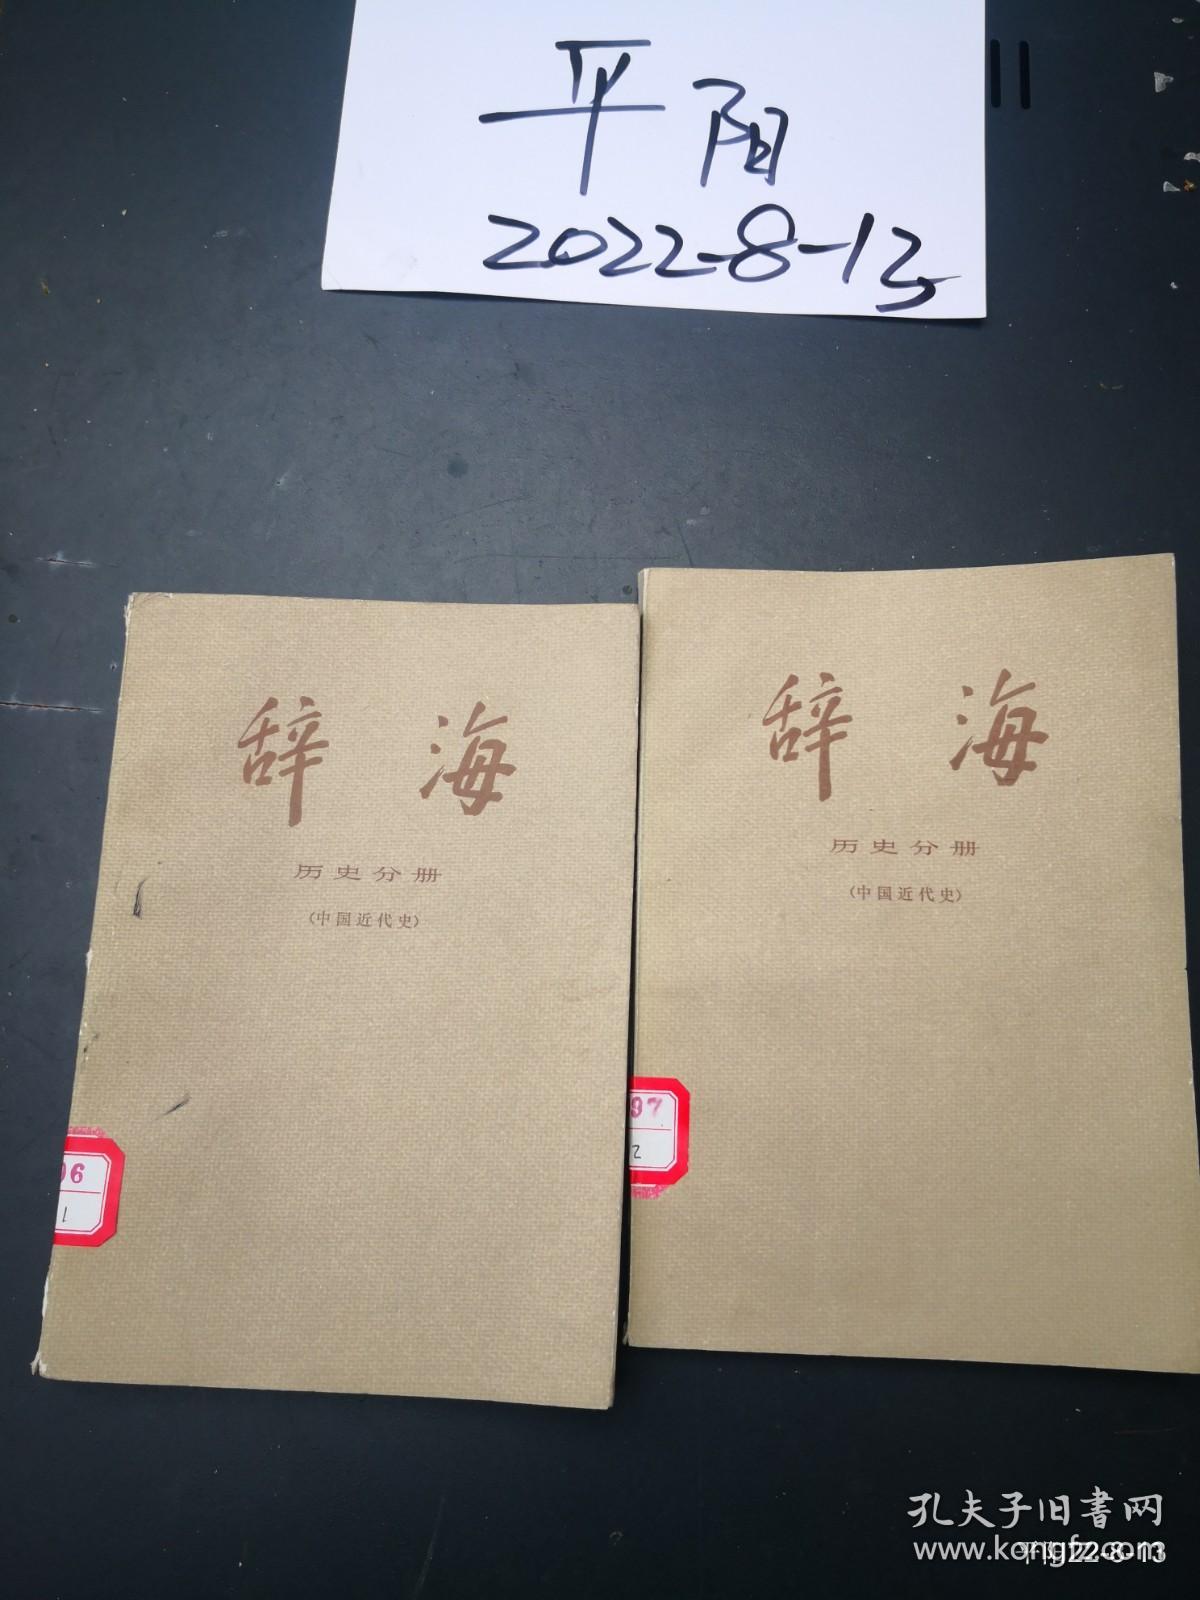 平阳
2022-8-13
辞海
历史分册
(中国近代史)
06
1
辞海
历史分册
(中国近代史)
97
2
孔夫子旧书网
www.kongfz.com
平阳22-8-13